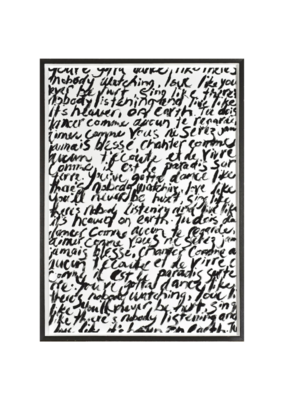 you've gotta dance like there's
nobody watching, love like you
ever be hurt, sing like there's
nobody listening and live like
it's heaven on earth. Tu dois
danser comme aucun te regarde
aimer comme vous ne serez jam
jamais blesse, chanter comme
aucun t'ecoute et de vivre
comme il est paradis sur
terre. You've gotta dance like
there's nobody watching, love like
you'll never be hurt, sing like
there's nobody listening and live like
it's heaven on earth. Tu dois da
danser comme aucun te regarde
aimer comme vous ne serez jam
jamais blesse, chanter comme a
aucun t'ecoute et de vivre
comme il est paradis sur te
terre. You've gotta dance like
there's nobody watching, love li
like you'll never be hurt, sing
like there's nobody listening and
live like it's heaven on earth. Tu